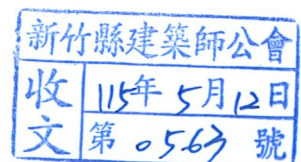 新竹縣建築師公會
收文
115年5月12日
第0563號